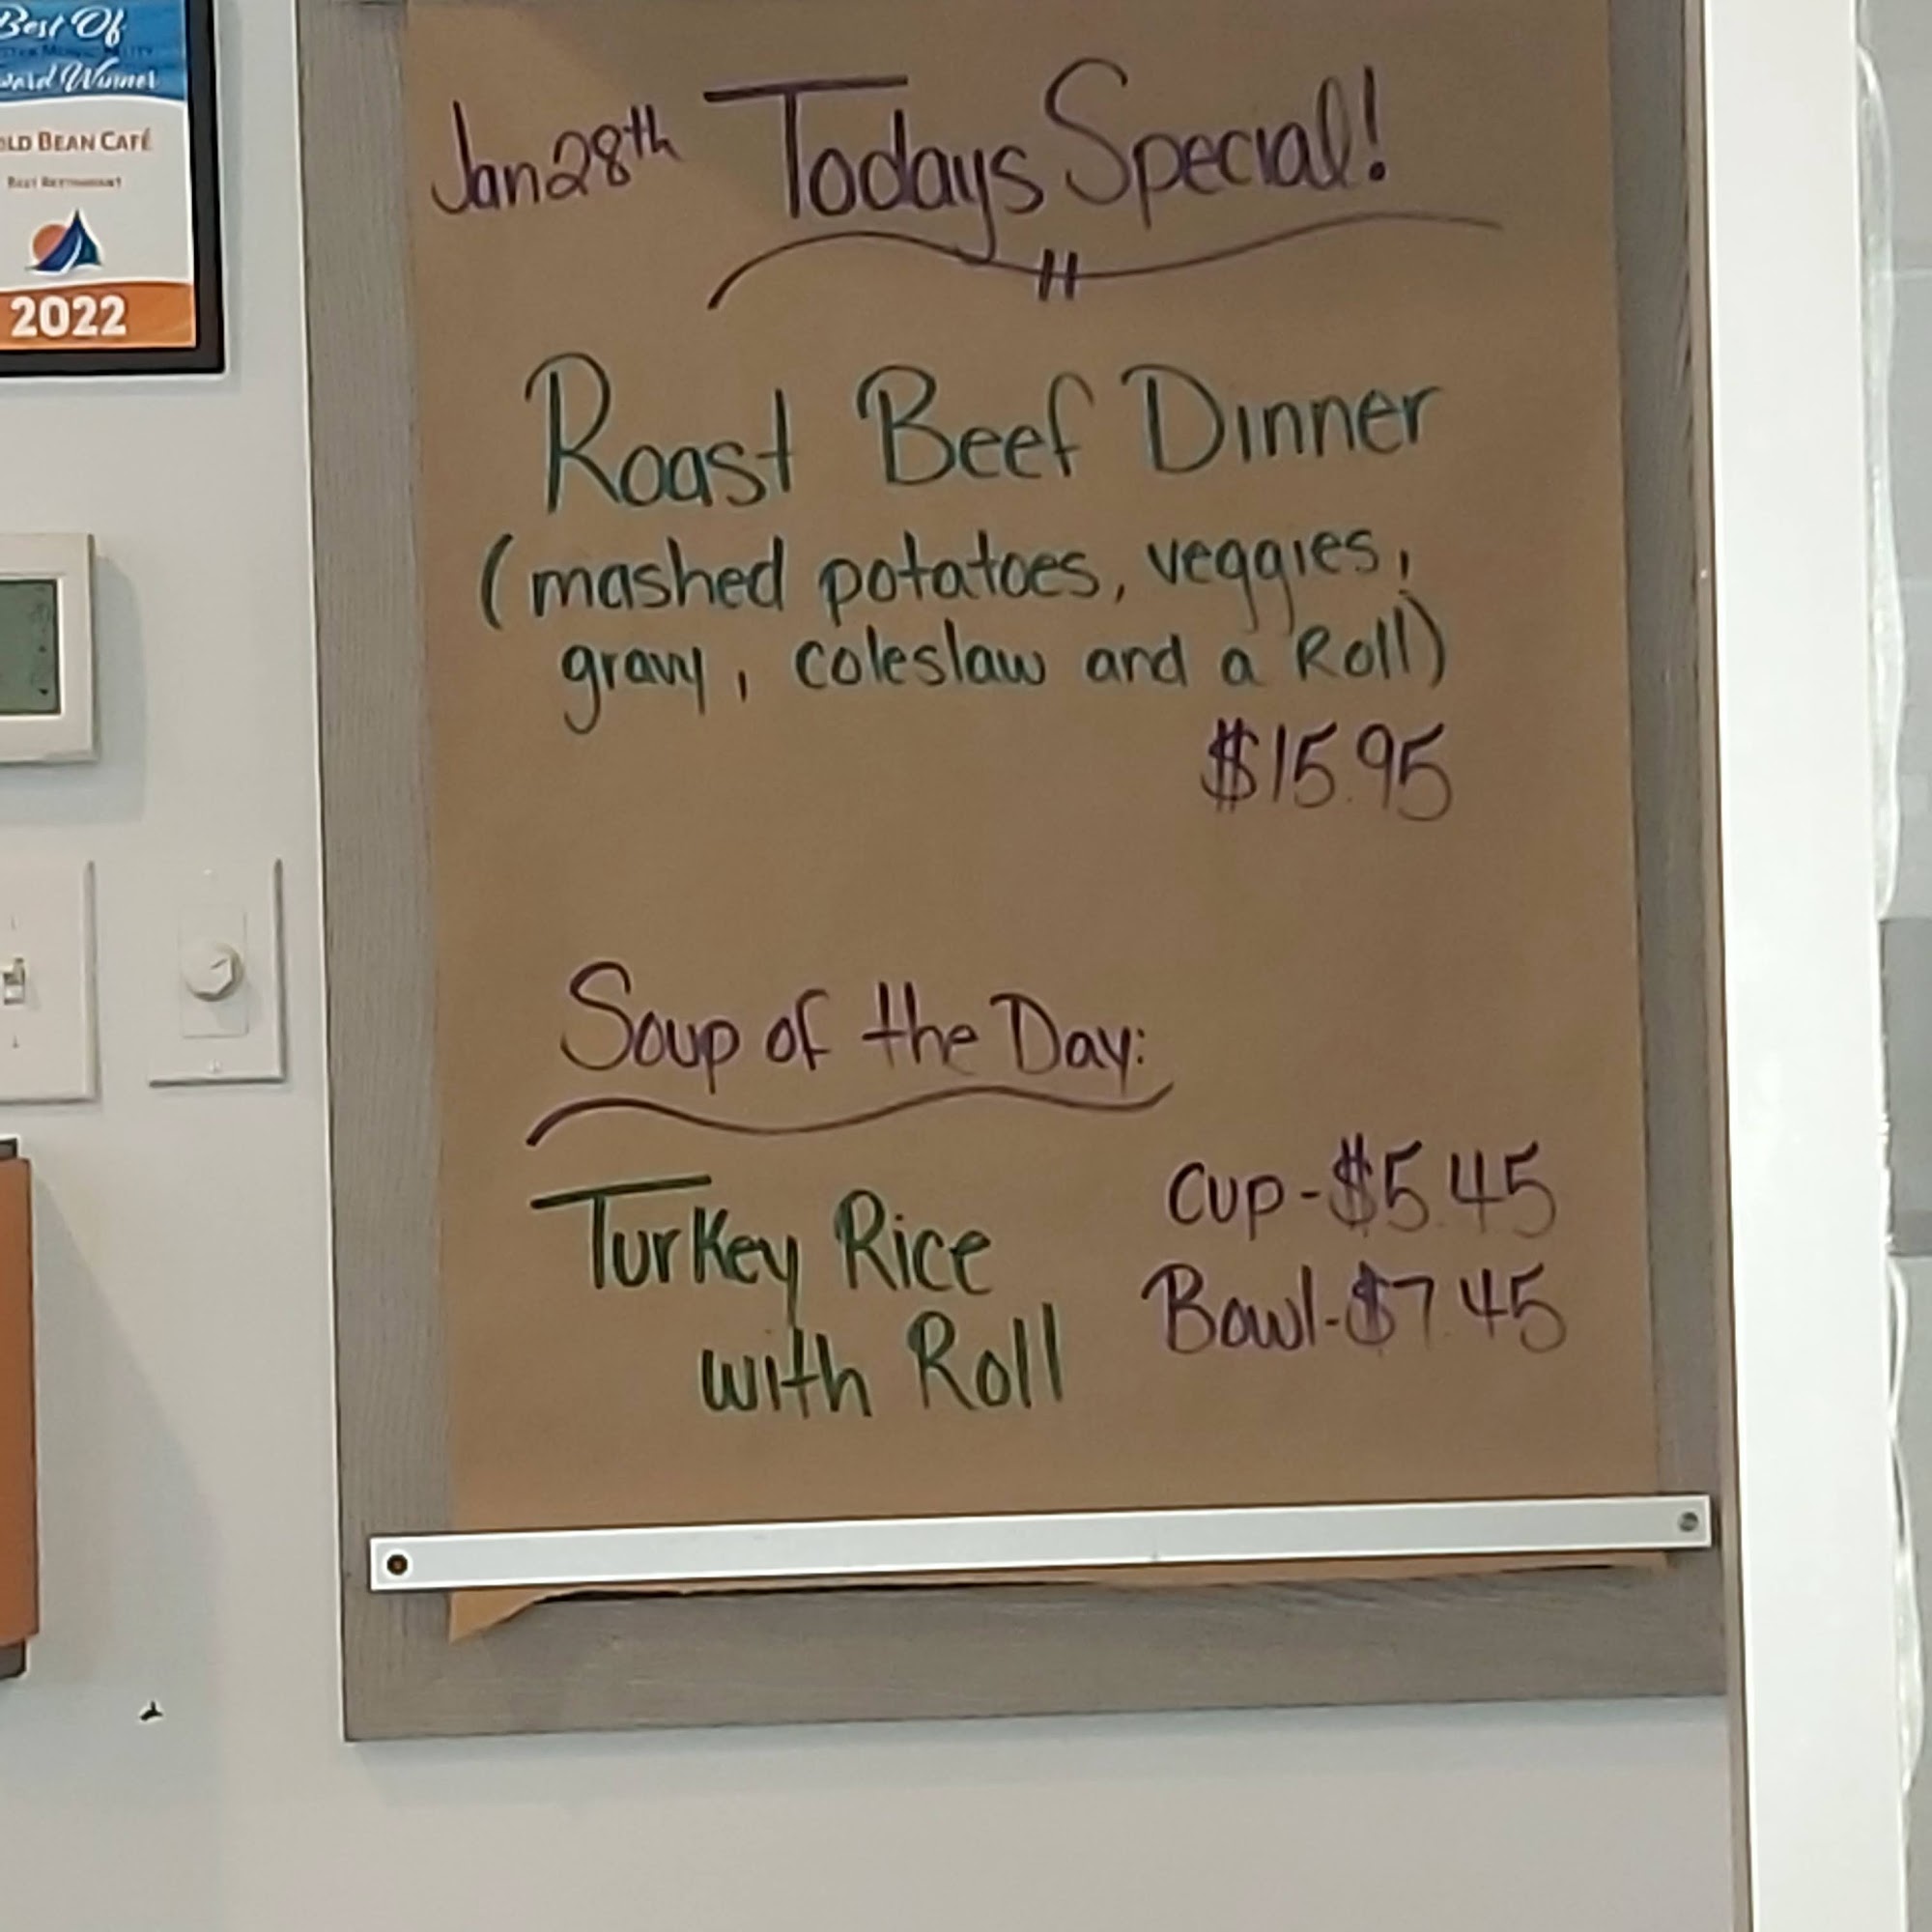 Best Of
Winner
BEAN CAFÉ
2022
Jan 28th Todays Special!
Roast Beef Dinner
(mashed potatoes, veggies,
gravy, coleslaw and a Roll)
$15.95
Soup of the Day:
Turkey Rice
with Roll
Cup-$5.45
Bowl-$7.45